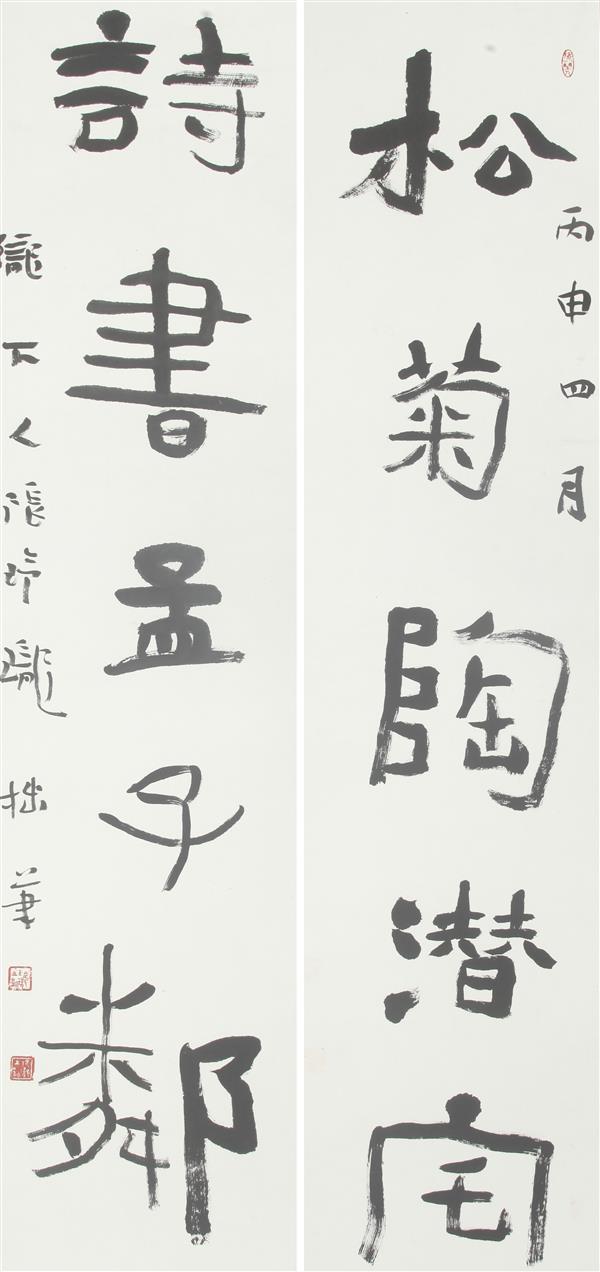 丙申四月
松菊陶潜宅
詩書孟子鄰
隴下人張
拙筆